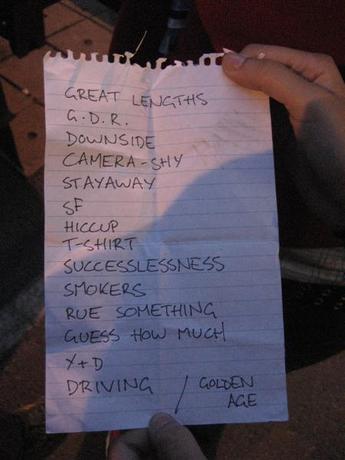 GREAT LENGTHS
G.D.R.
DOWNSIDE
CAMERA-SHY
STAYAWAY
SF
HICCUP
T-SHIRT
SUCCESSLESSNESS
SMOKERS
RUE SOMETHING
GUESS HOW MUCH
Y+D
DRIVING / GOLDEN
AGE